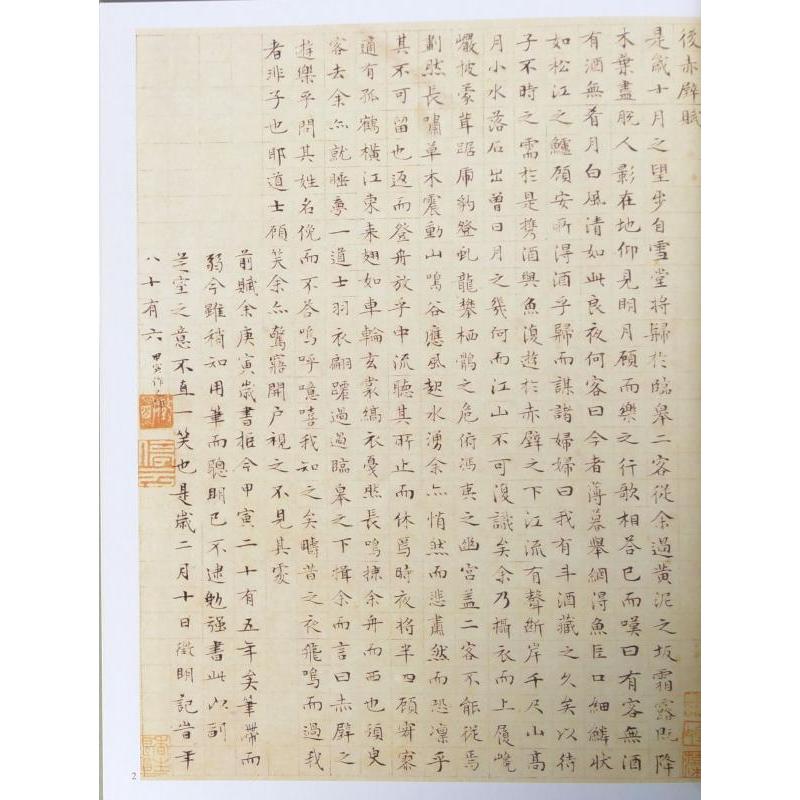 後赤壁賦
是歲十月之望步自雪堂將歸於臨皋二客從余過黃泥之坂霜露既降
木葉盡脫人影在地仰見明月顧而樂之行歌相答已而嘆曰有客無酒
有酒無肴月白風清如此良夜何客曰今者薄暮舉網得魚巨口細鱗狀
如松江之鱸顧安所得酒乎歸而謀諸婦婦曰我有斗酒藏之久矣以待
子不時之需於是攜酒與魚復遊於赤壁之下江流有聲斷岸千尺山高
月小水落石出曾日月之幾何而江山不可復識矣余乃攝衣而上履巉
巖披蒙茸踞虎豹登虬龍攀栖鶻之危俯馮夷之幽宮蓋二客不能從焉
劃然長嘯草木震動山鳴谷應風起水湧余亦悄然而悲肅然而恐凜乎
其不可留也返而登舟放乎中流聽其所止而休焉時夜將半四顧寂寥
適有孤鶴橫江東來翅如車輪玄裳縞衣戛然長鳴掠余舟而西也須臾
客去余亦就睡夢一道士羽衣翩躚過過臨皋之下揖余而言曰赤壁之
遊樂乎問其姓名俛而不答嗚呼噫嘻我知之矣疇昔之夜飛鳴而過我
者非子也耶道士顧笑余亦驚寤開戶視之不見其處
前賦余庚寅歲書拒今甲寅二十有五年矣筆帶而
弱今雖稍知用筆而聰明已不逮勉強書此以副
芝室之意不直一笑也是歲二月十日徵明記時年
八十有六
甲寅作
2